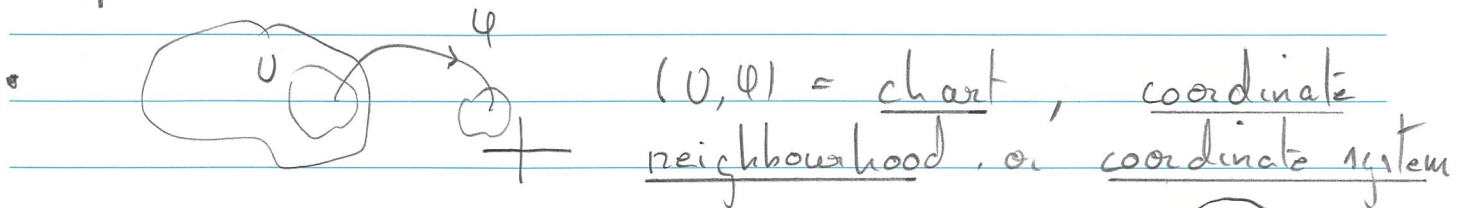 φ
U
(U, φ) = chart, coordinate
neighbourhood, or coordinate system